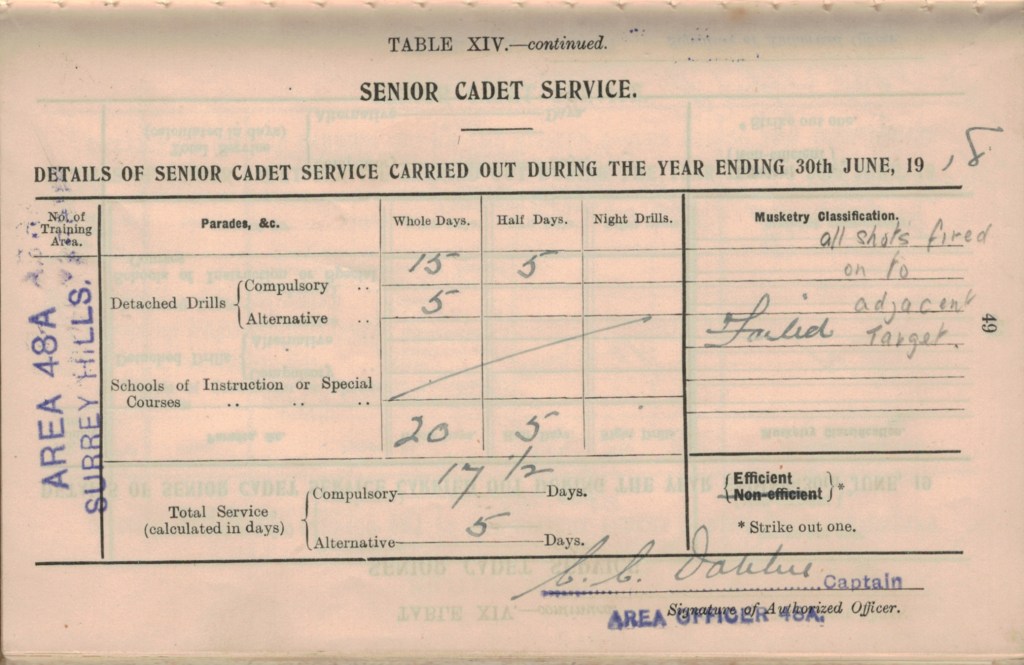 TABLE XIV.—continued.
SENIOR CADET SERVICE.
DETAILS OF SENIOR CADET SERVICE CARRIED OUT DURING THE YEAR ENDING 30th JUNE, 19 18.
No. of Training Area.
Parades, &c. Whole Days. Half Days. Night Drills. Musketry Classification.
AREA 48A
SURREY HILLS.
15 5
Detached Drills { Compulsory ..
5
Alternative ..
Schools of Instruction or Special
Courses .. .. ..
20 5
all shots fired
on to
adjacent
Failed Target.
49
Total Service (calculated in days)
Compulsory 17 1/2 Days.
Alternative 5 Days.
Efficient
Non-efficient } *
* Strike out one.
Captain
Signature of Authorized Officer.
AREA OFFICER 48A.